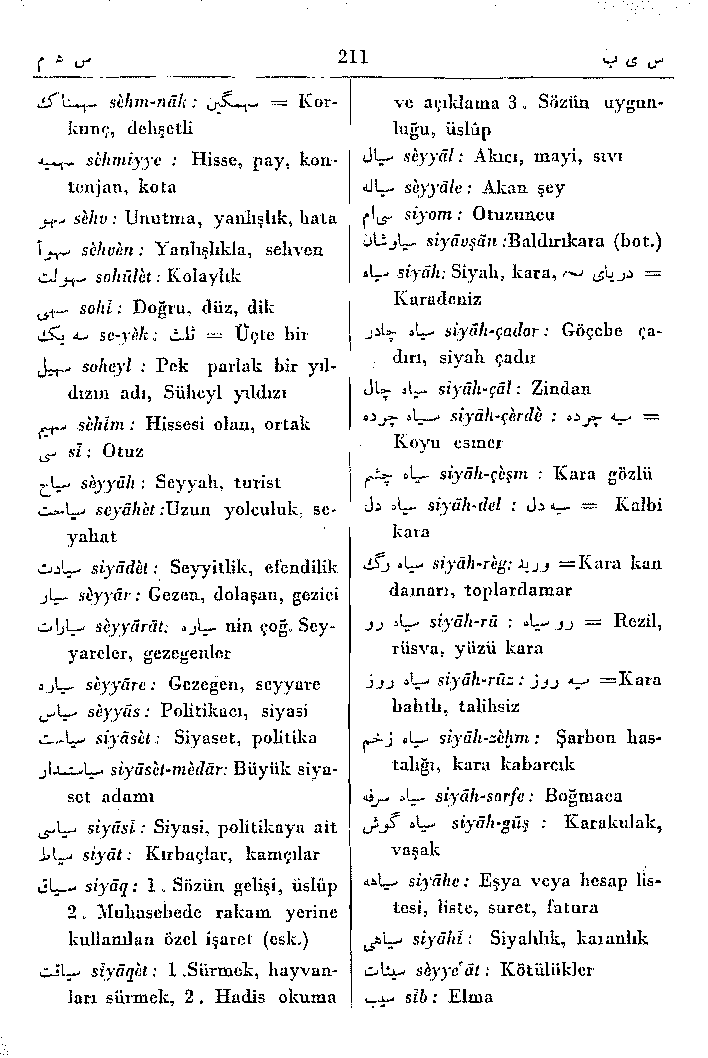 س ﻫ م
211
س ی ب
سهمناك sèhm-nāk : سهمگين = Kor-
kunç, dehşetli
سهميه sèhmiyye : Hisse, pay, kon-
tenjan, kota
سهو sèhv : Unutma, yanlışlık, hata
سهواً sèhvèn : Yanlışlıkla, sehven
سهولت sohūlèt : Kolaylık
سهى sohî : Doğru, düz, dik
سه يك se-yèk : ثلث = Üçte bir
سهيل soheyl : Pek parlak bir yıl-
dızın adı, Süheyl yıldızı
سهيم sèhîm : Hissesi olan, ortak
سى sî : Otuz
سياح sèyyāh : Seyyah, turist
سياحت seyāhèt :Uzun yolculuk, se-
yahat
سيادت siyādèt : Seyyitlik, efendilik
سيار sèyyār : Gezen, dolaşan, gezici
سيارات sèyyārāt: سياره nin çoğ. Sey-
yareler, gezegenler
سياره sèyyāre : Gezegen, seyyare
سياس sèyyās : Politikacı, siyasi
سياست siyāsèt : Siyaset, politika
سياستمدار siyāsèt-mèdār: Büyük siya-
set adamı
سياسى siyāsî : Siyasi, politikaya ait
سياط siyāt : Kırbaçlar, kamçılar
سياق siyāq : 1. Sözün gelişi, üslüp
2. Muhasebede rakam yerine
kullanılan özel işaret (esk.)
سياقت siyāqèt : 1.Sürmek, hayvan-
ları sürmek, 2. Hadis okuma
ve açıklama 3. Sözün uygun-
luğu, üslûp
سيال sèyyāl : Akıcı, mayi, sıvı
سياله sèyyāle : Akan şey
سى‌ام siyom : Otuzuncu
سياوشان siyāvşān :Baldırıkara (bot.)
سياه siyāh: Siyah, kara, درياى سياه =
Karadeniz
سياه چادر siyāh-çador : Göçebe ça-
dırı, siyah çadır
سياه چال siyāh-çāl : Zindan
سياه چرده siyāh-çèrdè : سيه چرده =
Koyu esmer
سياه چشم siyāh-çèşm : Kara gözlü
سياه دل siyāh-del : سيه دل = Kalbi
kara
سياه رگ siyāh-règ: وريد =Kara kan
damarı, toplardamar
سياه رو siyāh-rū : سياه رو = Rezil,
rüsva, yüzü kara
سياه روز siyāh-rūz : سيه روز =Kara
bahtlı, talihsiz
سياه زخم siyāh-zèḫm : Şarbon has-
talığı, kara kabarcık
سياه سرفه siyāh-sorfe : Boğmaca
سياه گوش siyāh-gūş : Karakulak,
vaşak
سياهه siyāhe : Eşya veya hesap lis-
tesi, liste, suret, fatura
سياهى siyāhî : Siyahlık, karanlık
سيئات sèyye'āt : Kötülükler
سيب sîb : Elma